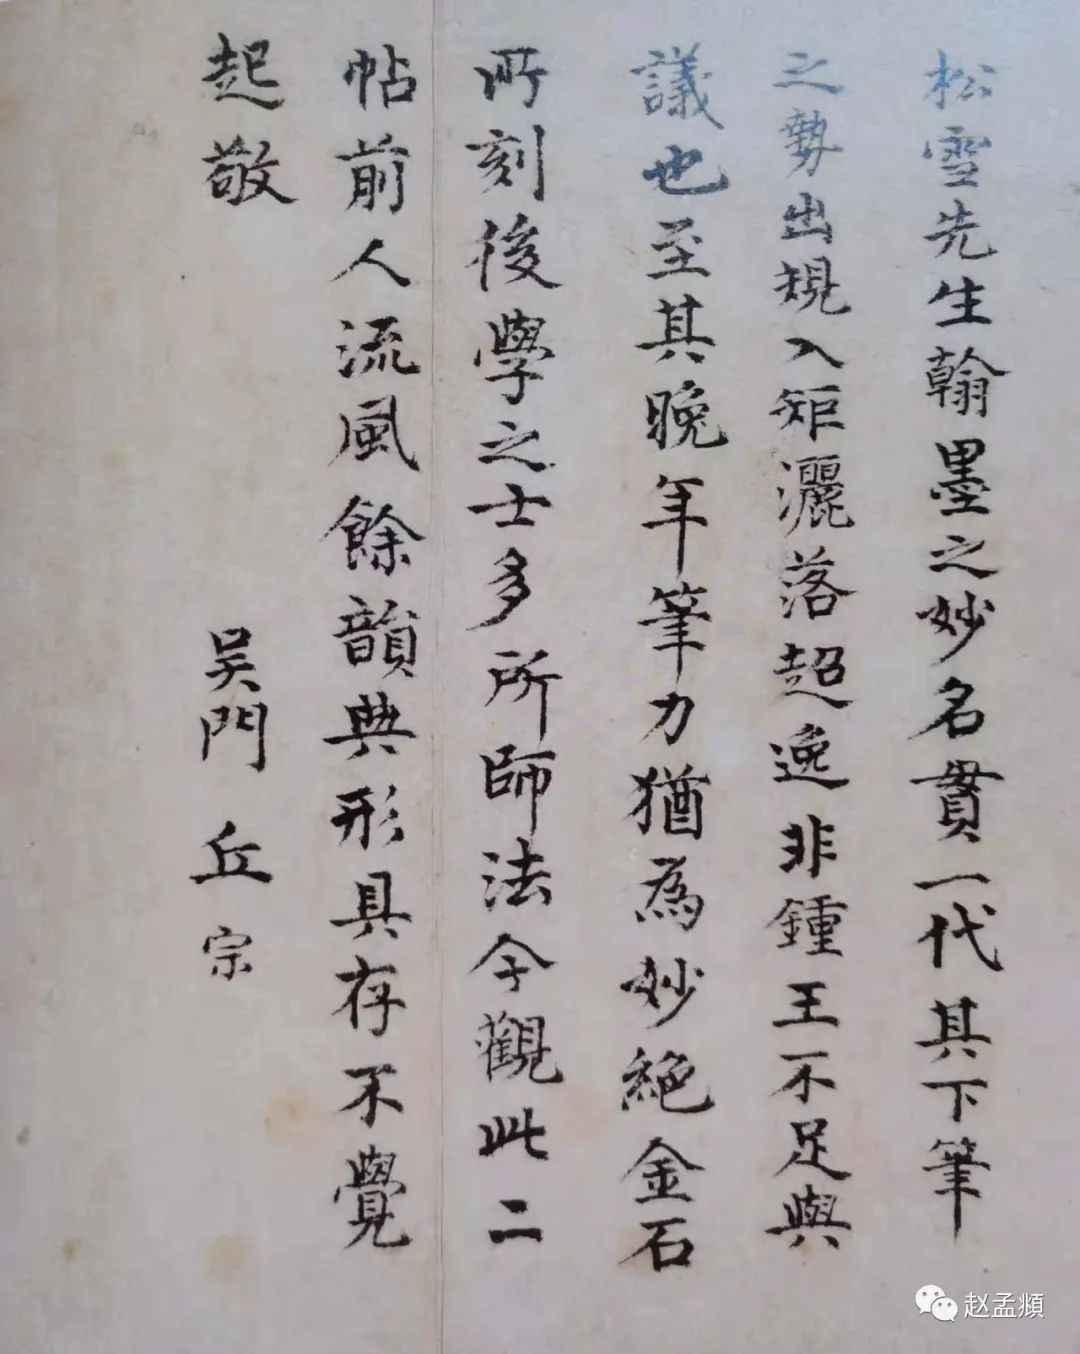 松雪先生翰墨之妙名貫一代其下筆
之勢出規入矩灑落超逸非鍾王不足與
議也至其晚年筆力猶為妙絕金石
所刻後學之士多所師法今觀此二
帖前人流風餘韻典形具存不覺
起敬
吴門 丘宗
赵孟頫